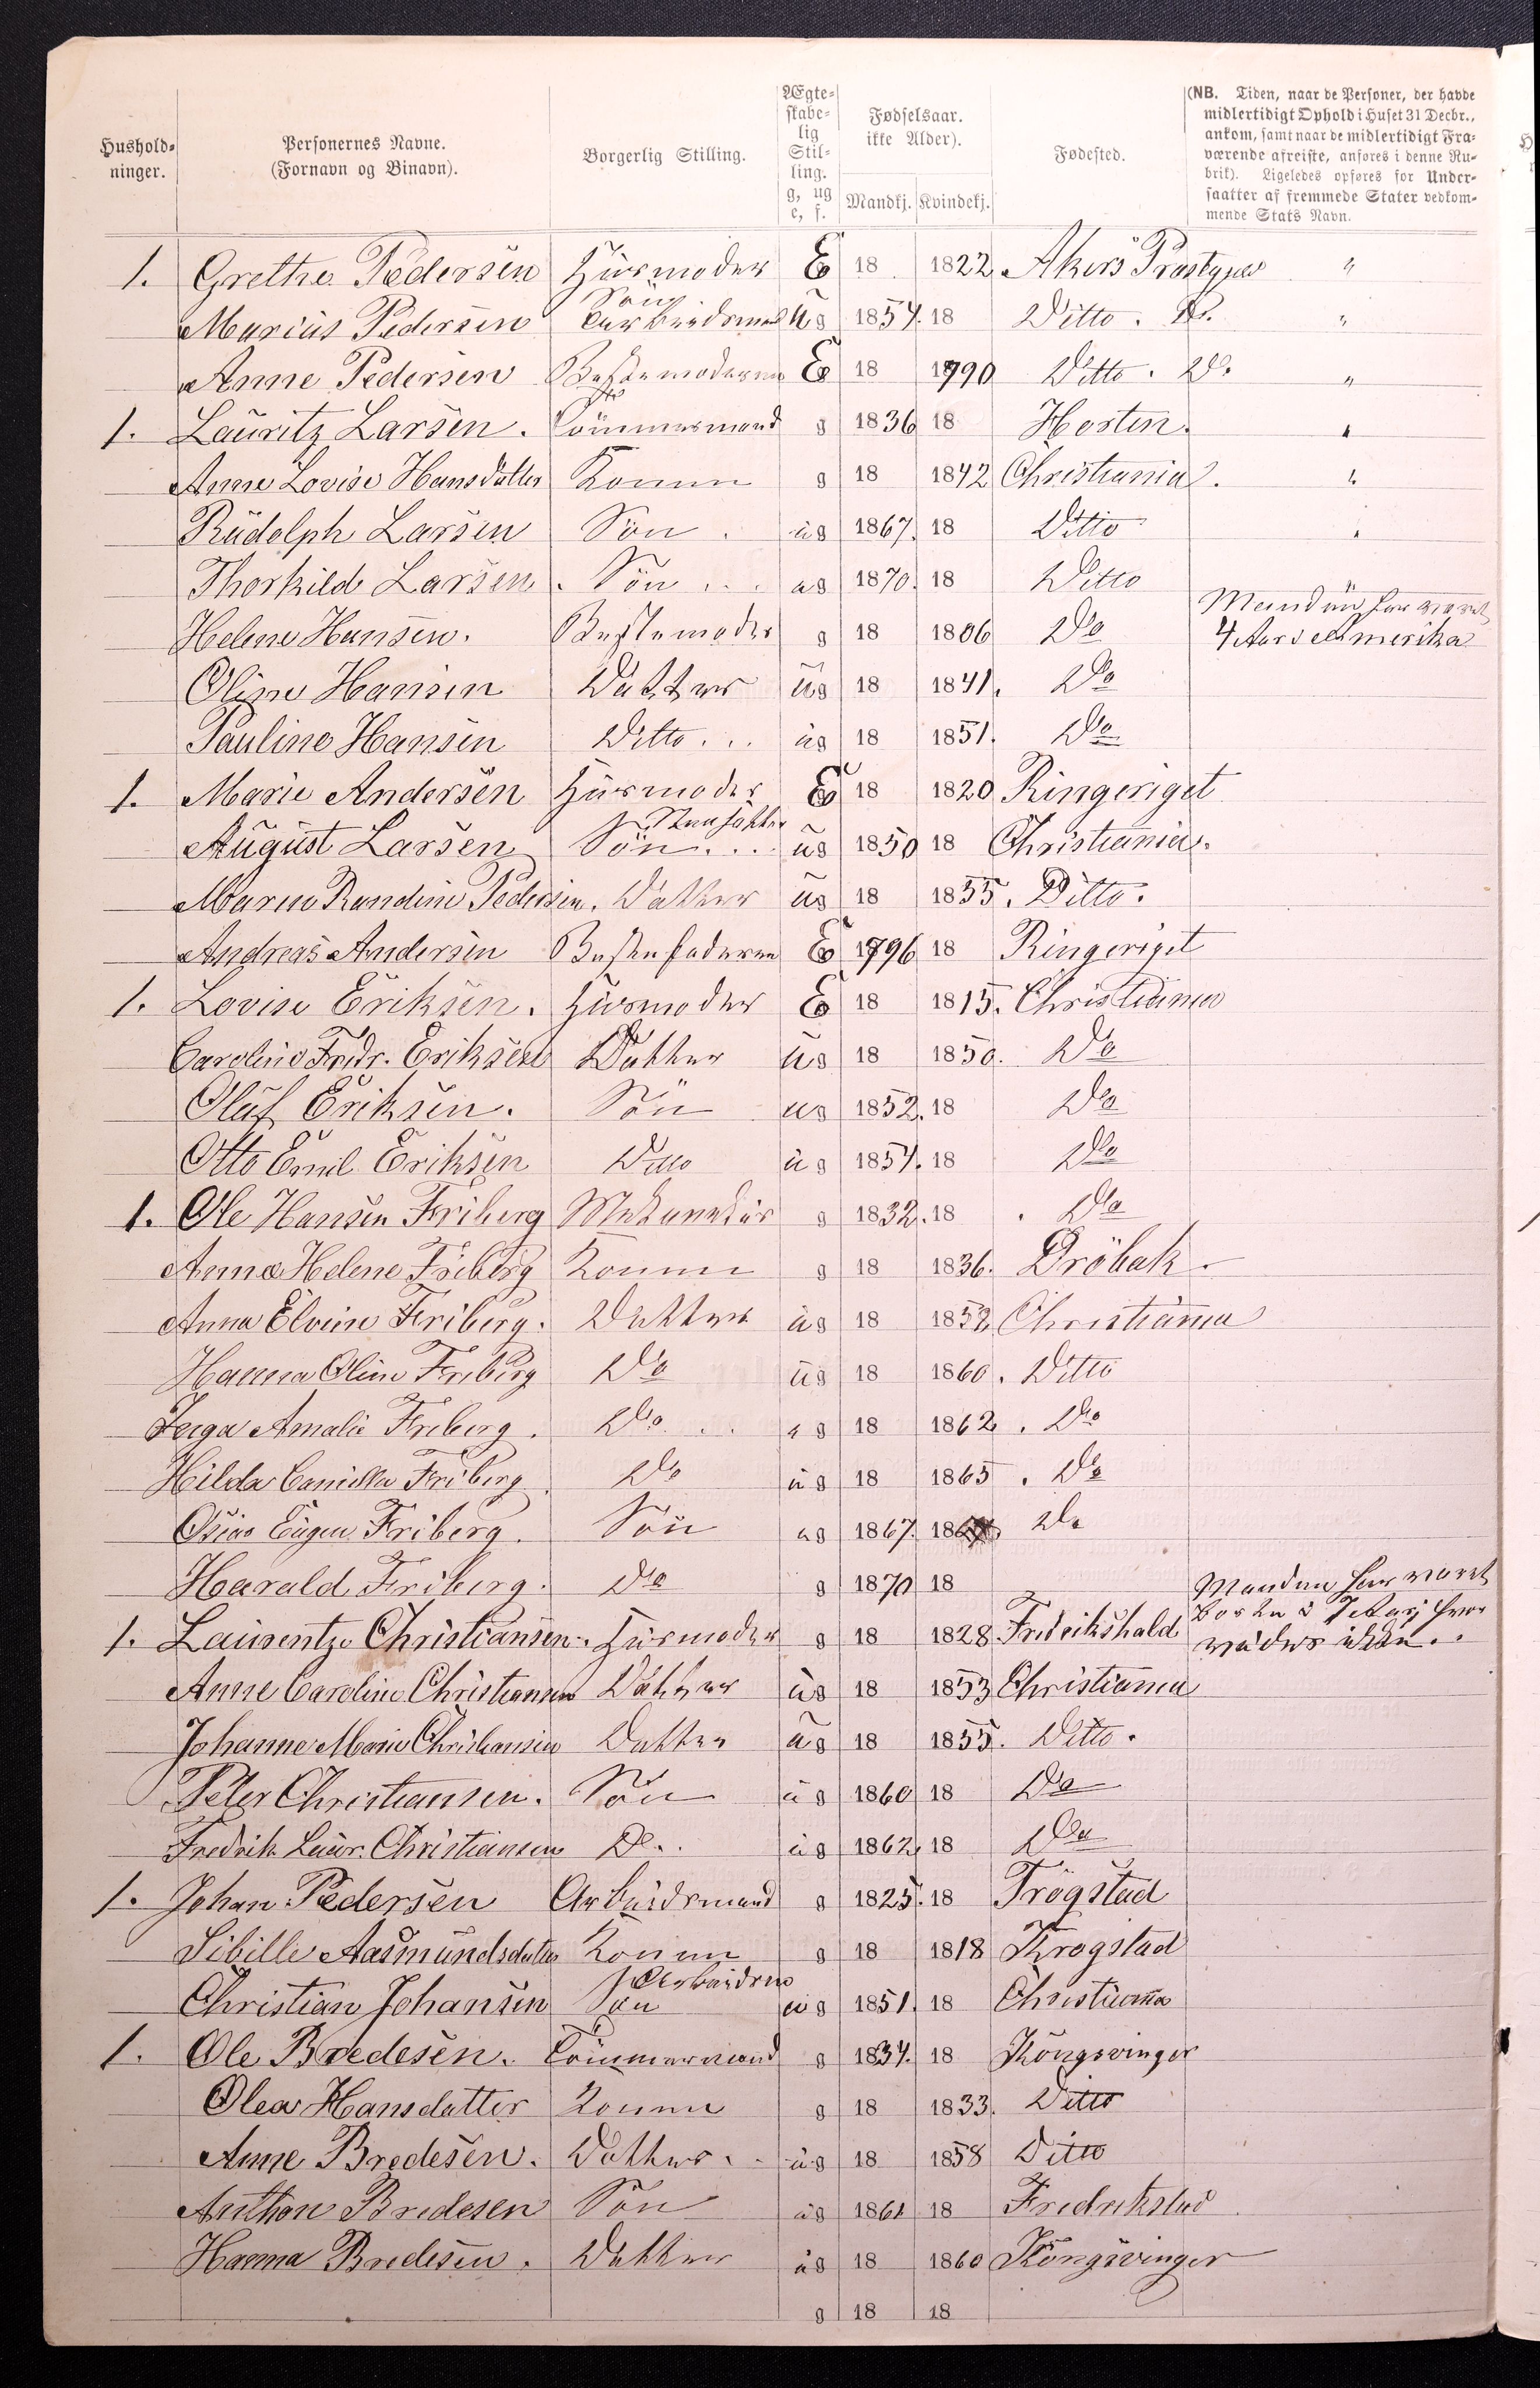 Hushold-
ninger.
Personernes Navne.
(Fornavn og Binavn).
Borgerlig Stilling.
Ægte-
skabe-
lig
Stil-
ling.
g, ug
e, f.
Fødselsaar.
ikke Alder).
Mandkj. Kvindekj.
Fødested.
(NB. Tiden, naar de Personer, der havde
midlertidigt Ophold i Huset 31 Decbr.,
ankom, samt naar de midlertidigt Fra-
værende afreiste, anføres i denne Ru-
brik). Ligeledes opføres for Under-
saatter af fremmede Stater vedkom-
mende Stats Navn.
1. Grethe Pedersen Husmoder E 18 1822 Akers Præstegjæld "
Søn
Marius Pedersen Arbeidsmand ug 1854. 18 Ditto. Do. "
Anne Pedersen Bestemoderen E 18 1790 Ditto. Do. "
1. Lauritz Larsen. Tömmermand g 1836 18 Horten. "
Anne Lovise Hansdatter Konen g 18 1842 Christiania. "
Rudolph Larsen Søn. ug 1867. 18 Ditto "
Thorkild Larsen. Søn... ug 1870. 18 Ditto
Manden har været
Helene Hansen. Bestemoder g 18 1806 Do 4 Aar i Amerika
Oline Hansen Datter ug 18 1841. Do
Pauline Hansen Ditto... ug 18 1851. Do
1. Marie Andersen Husmoder E 18 1820 Ringeriget
August Larsen Søn... ug 1850 18 Christiania.
Maren Randine Pedersen. Datter ug 18 1855. Ditto.
Andreas Andersen Bestefaderen E 1796 18 Ringeriget
1. Lovise Eriksen. Husmoder E 18 1815. Christiania
Caroline Fredr. Eriksen Datter ug 18 1850. Do
Oluf Eriksen. Søn ug 1852. 18 Do
Otto Emil Eriksen Ditto ug 1854. 18 Do
1. Ole Hansen Friberg g 1832. 18 . Do
Anna Helene Friberg Konen g 18 1836. Dröbak.
Anna Elvine Friberg. Datter ug 18 1852 Christiania
Hanna Oline Friberg Do ug 18 1860. Ditto
Inga Amalie Friberg. Do... ug 18 1862. Do
Hilda Camilla Friberg Do ug 18 1865. Do
Eugen Friberg. Søn ug 1867. 18 Do
Harald Friberg. Do g 1870 18
Manden har været
borte i 7 Aar, hvor
1. Laurentze Christiansen. Husmoder g 18 1828. Fredrikshald vides ikke..
Anne Caroline Christiansen Datter ug 18 1853 Christiania
Johanne Marie Christiansen Datter ug 18 1855. Ditto.
Peter Christiansen. Søn ug 1860 18 Do
Fredrik Laur. Christiansen Do. ug 1862. 18 Do
1. Johan Pedersen Arbeidsmand g 1825. 18 Trögstad
Sibille Aasmundsdatter Konen g 18 1818 Krogstad
Arbeidsm
Christian Johansen Søn ug 1851. 18 Christiania
1. Ole Bredesen. Tömmermand g 1834. 18 Kongsvinger
Olea Hansdatter Konen g 18 1833. Ditto
Anne Bredesen. Datter.. ug 18 1858 Ditto
Anthon Bredesen Søn ug 1861 18 Fredrikstad
Hanna Bredesen. Datter ug 18 1860 Kongsvinger
g 18 18